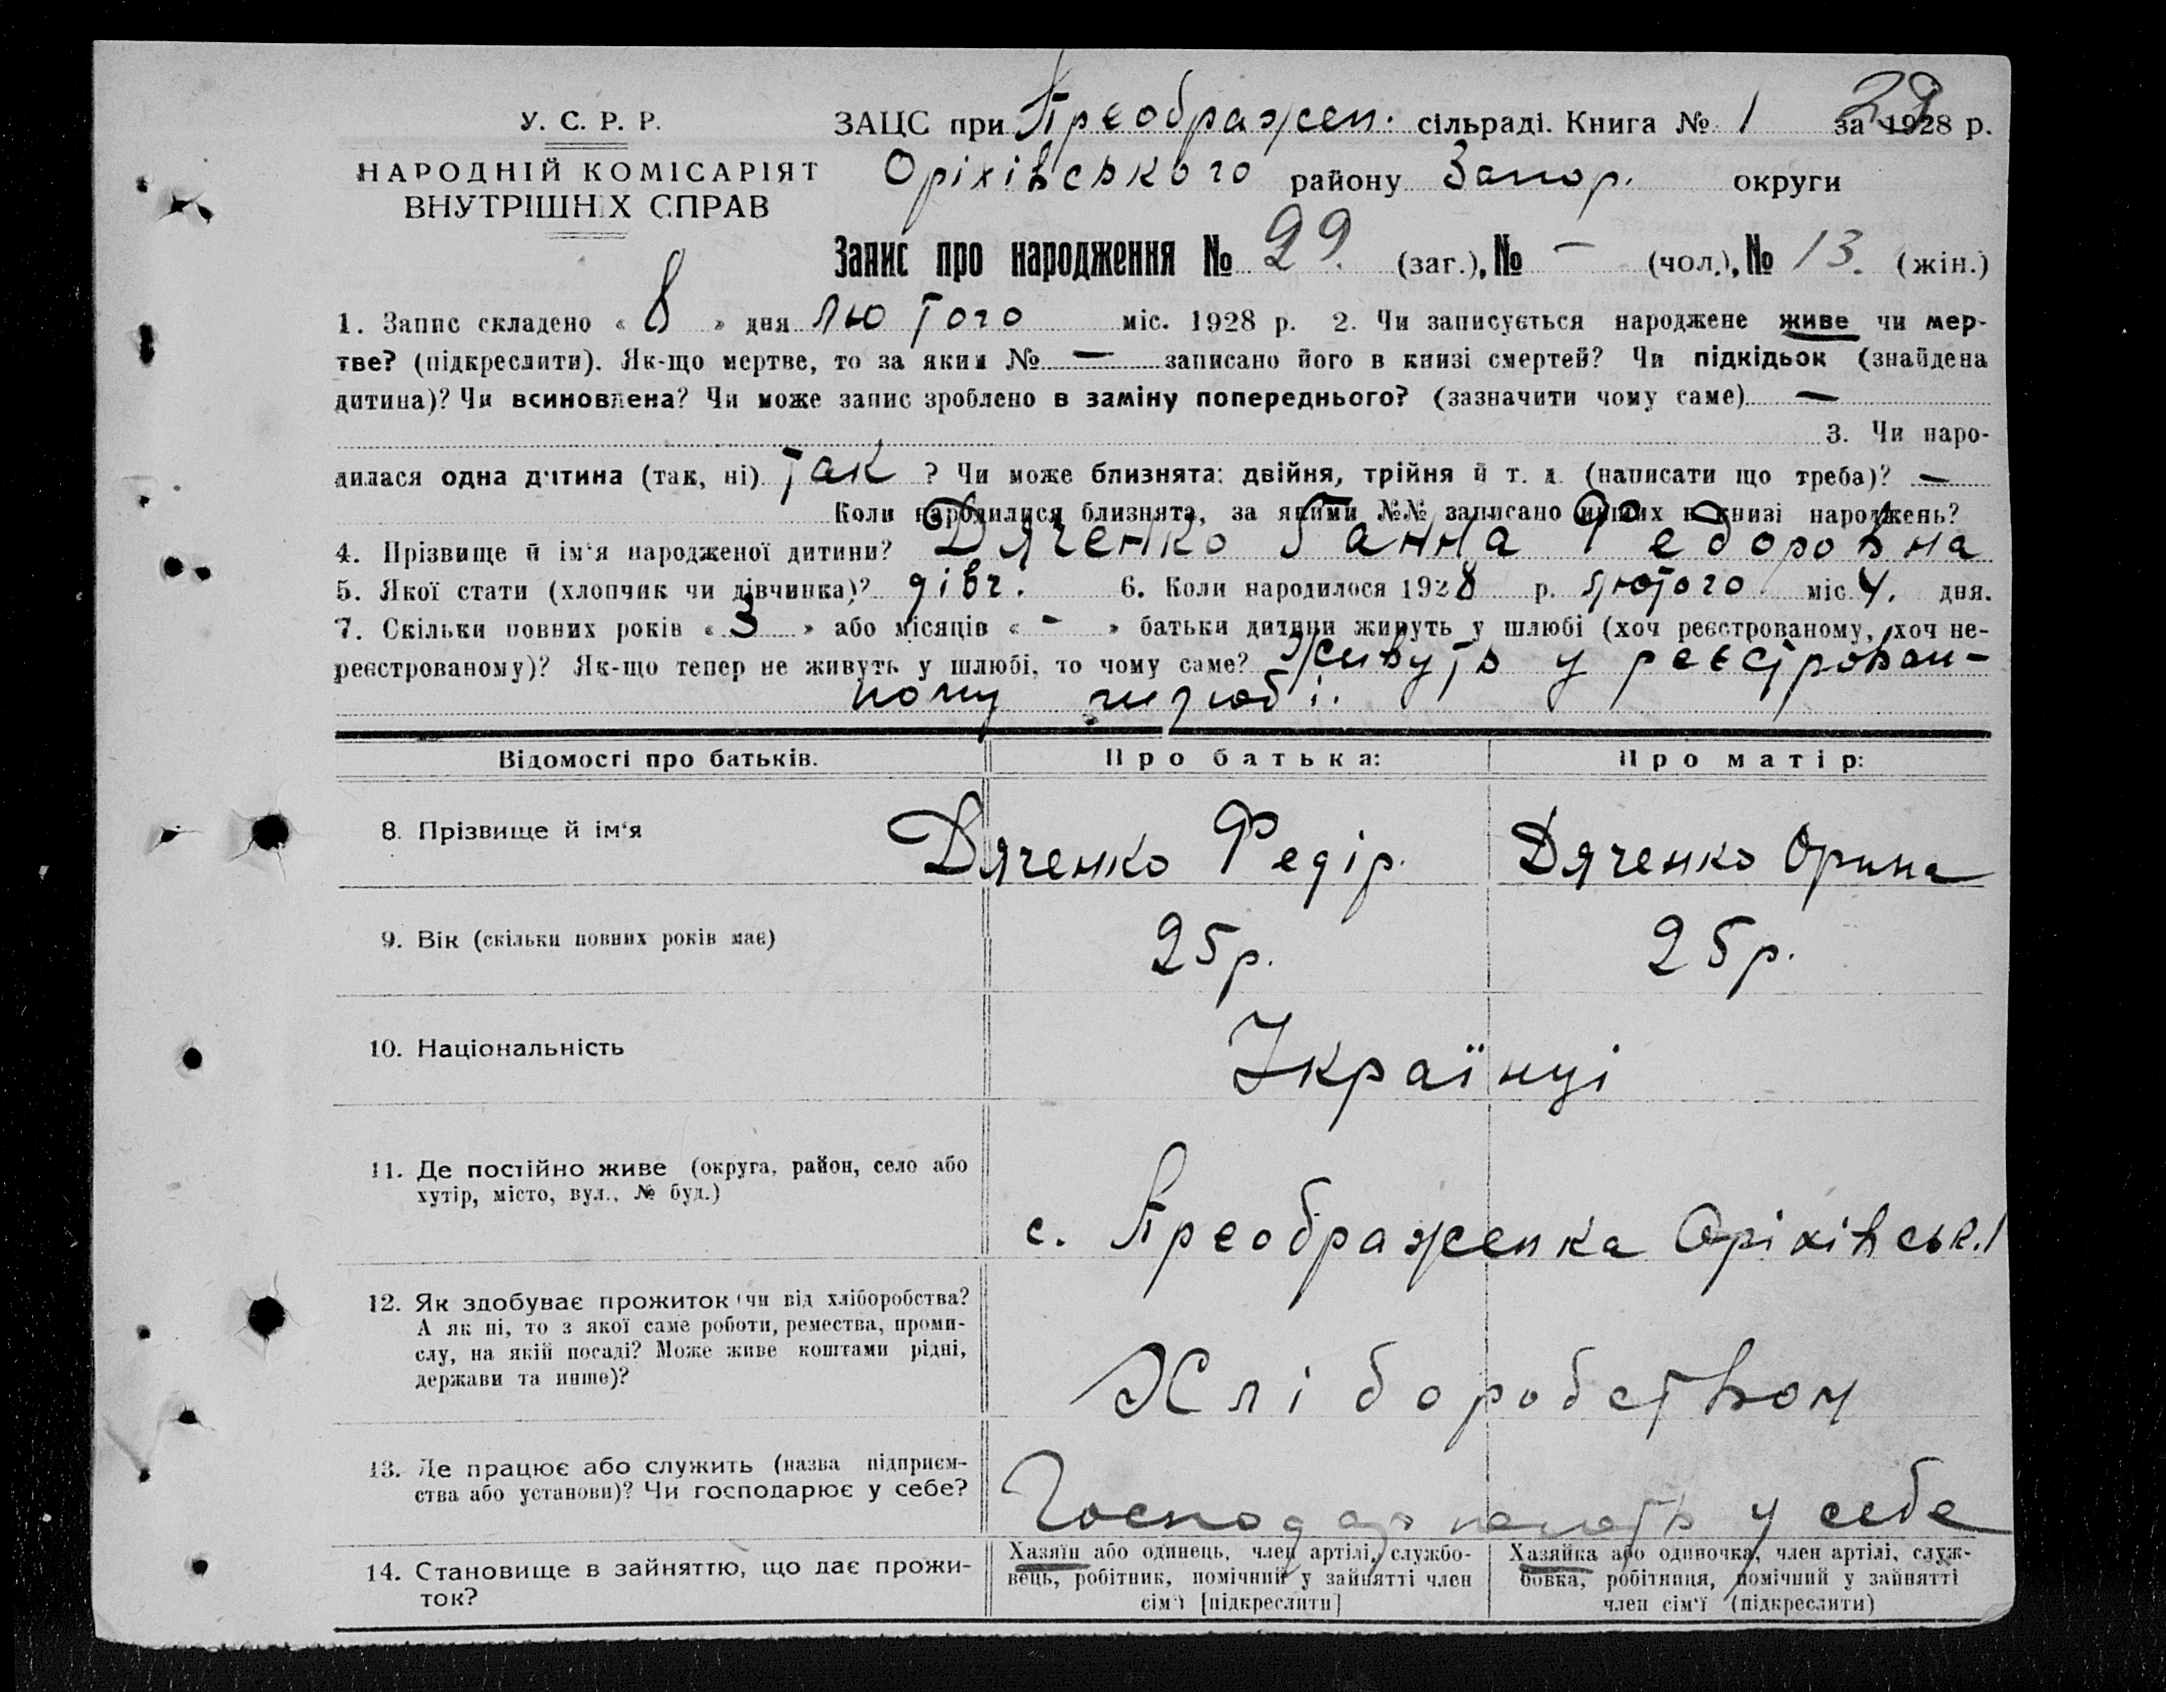 29
У. С. Р. Р.
ЗАЦС при Преображен. сільраді. Книга № 1 за 1928 р.
НАРОДНІЙ КОМІСАРІЯТ
ВНУТРІШНІХ СПРАВ
Оріхівського району Запор. округи
Запис про народження № 29. (заг.), № – (чол.), № 13. (жін.)
1. Запис складено « 8 » дня лютого міс. 1928 р. 2. Чи записується народжене живе чи мер-
тве? (підкреслити). Як-що мертве, то за яким № — записано його в книзі смертей? Чи підкідьок (знайдена
дитина)? Чи всиновлена? Чи може запис зроблено в заміну попереднього? (зазначити чому саме) —
3. Чи наро-
дилася одна дитина (так, ні) так ? Чи може близнята: двійня, трійня й т. д. (написати що треба)? —
Коли народилися близнята, за якими №№ записано инших в книзі народжень?
4. Прізвище й ім'я народженої дитини? Дяченко Ганна Федоровна
5. Якої стати (хлопчик чи дівчинка)? дівч. 6. Коли народилося 1928 р. лютого міс. 4. дня.
7. Скільки повних років « 3 » або місяців « – » батьки дитини живуть у шлюбі (хоч реєстрованому, хоч не-
реєстрованому)? Як-що тепер не живуть у шлюбі, то чому саме? Живуть у реєстрован-
ному шлюбі.
Відомості про батьків.
Про батька:
Про матір:
8. Прізвище й ім'я
Дяченко Федір.
Дяченко Орина
9. Вік (скільки повних років має)
25 р.
25 р.
10. Національність
Українці
11. Де постійно живе (округа, район, село або
хутір, місто, вул., № буд.)
с. Преображенка Оріхівськ.
12. Як здобуває прожиток (чи від хліборобства?
А як ні, то з якої саме роботи, ремества, проми-
слу, на якій посаді? Може живе коштами рідні,
держави та инше)?
Хліборобством
13. Де працює або служить (назва підприєм-
ства або установи)? Чи господарює у себе?
у себе
14. Становище в зайняттю, що дає прожи-
ток?
Хазяїн або одинець, член артілі, службо-
вець, робітник, помічний у зайнятті член
сім'ї [підкреслити]
Хазяйка або одиночка, член артілі, служ-
бовка, робітниця, помічний у зайнятті
член сім'ї (підкреслити)